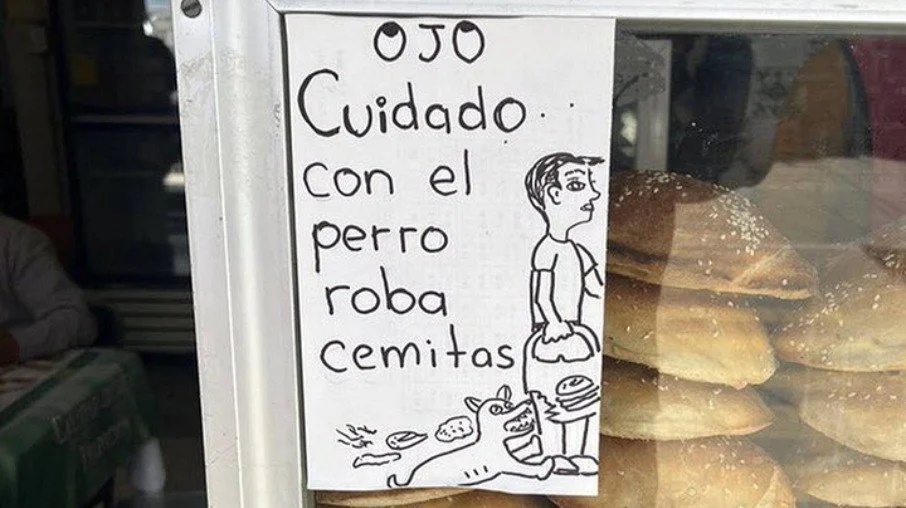 OJO
Cuidado
con el
perro
roba
cemitas